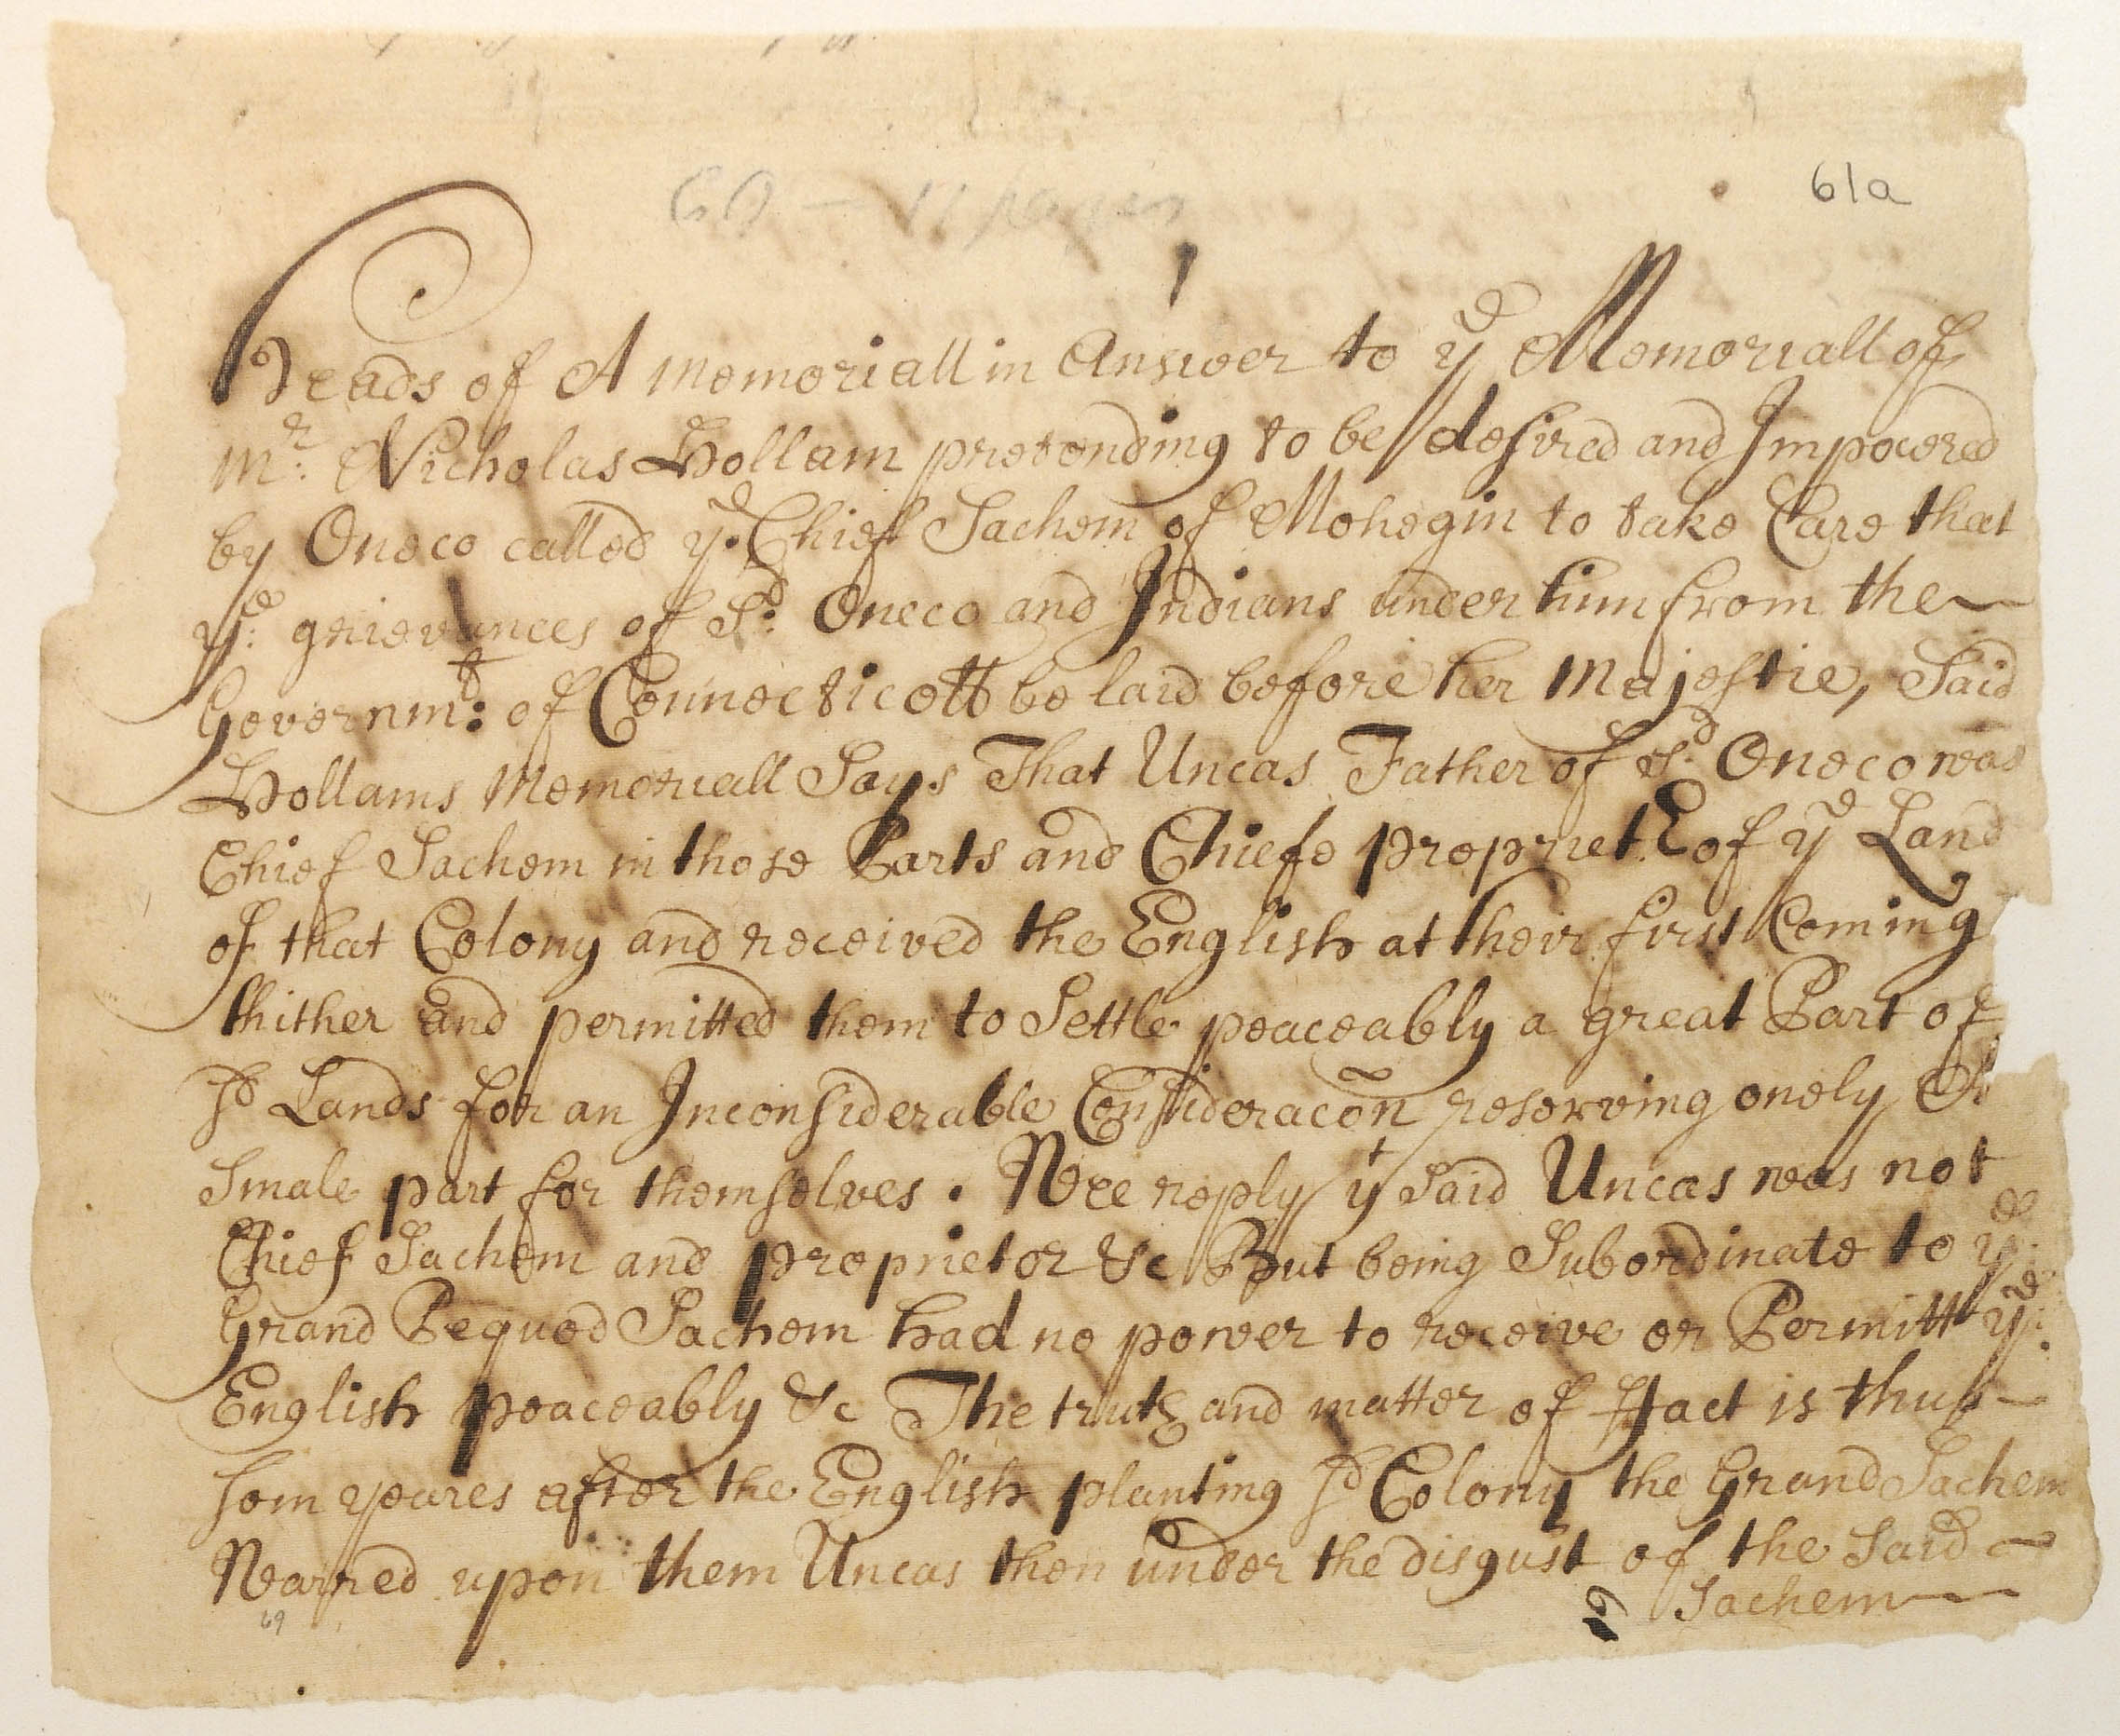 61a
Heads of A Memoriall in Answer to ye Memoriall of
Mr. Nicholas Hollam pretending to be desired and Impowered
by Oneco called ye. Chief Sachem of Mohegin to take Care that
ye: grievances of sd: Oneco and Indians under him from the
Governmt: of Connecticott be laid before her Majestie, Said
Hollams Memoriall Says That Uncas Father of sd. Oneco was
Chief Sachem in those Parts and Chiefe propriet. of ye Land
of that Colony and received the English at their first Coming
thither and permitted them to Settle peaceably a great Part of
sd Lands for an Inconsiderable Consideracon reserving onely A
Smale part for themselves. Wee reply yt Said Uncas was not
Chief Sachem and proprietor &c But being Subordinate to ye:
Grand Pequod Sachem had no power to receive or Permitt ye:
English peaceably &c The truth and matter of ffact is thus
som yeares after the English planting sd Colony the Grand Sachem
Warred upon them Uncas then under the disgust of the Said
Sachem
69